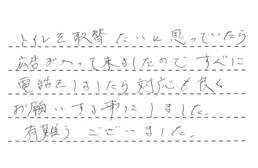 トイレを取替たいと思っていたら
広告が入って来ましたので すぐに
電話をしましたら対応も良く
お願いする事にしました。
有難う ございました。